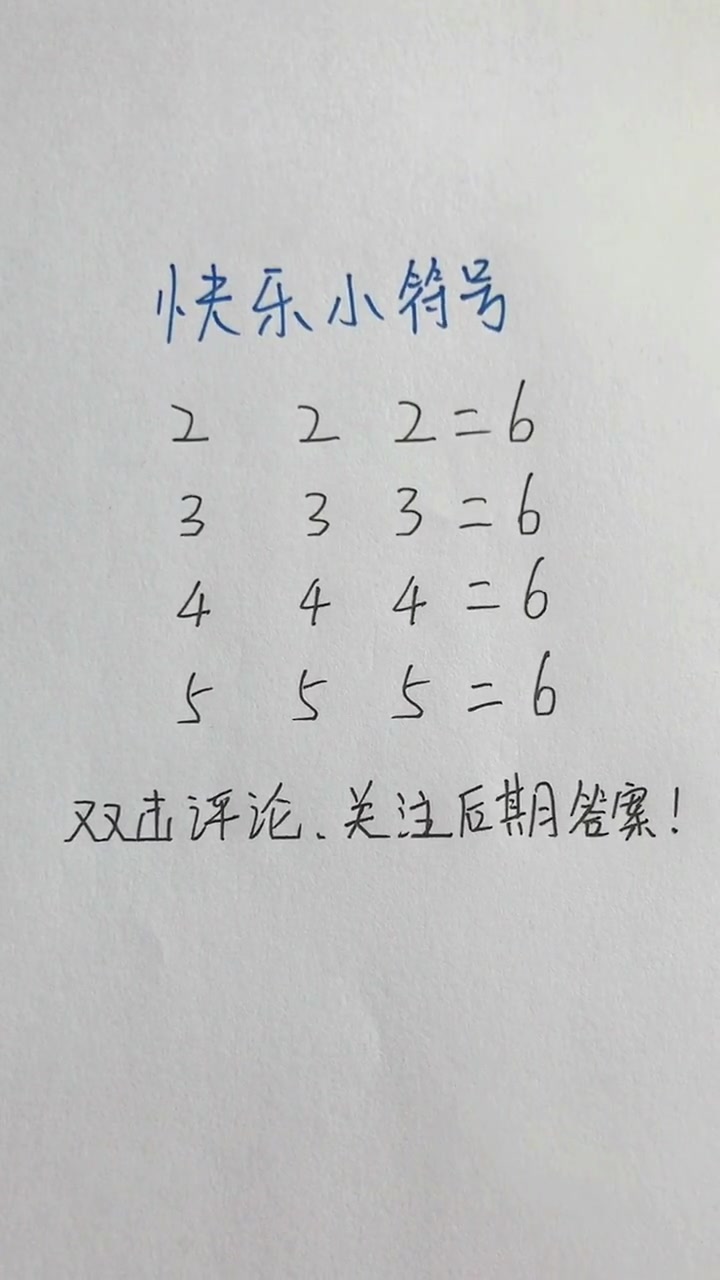 快乐小符号
2 2 2=6
3 3 3=6
4 4 4=6
5 5 5=6
双击评论、关注后期答案!